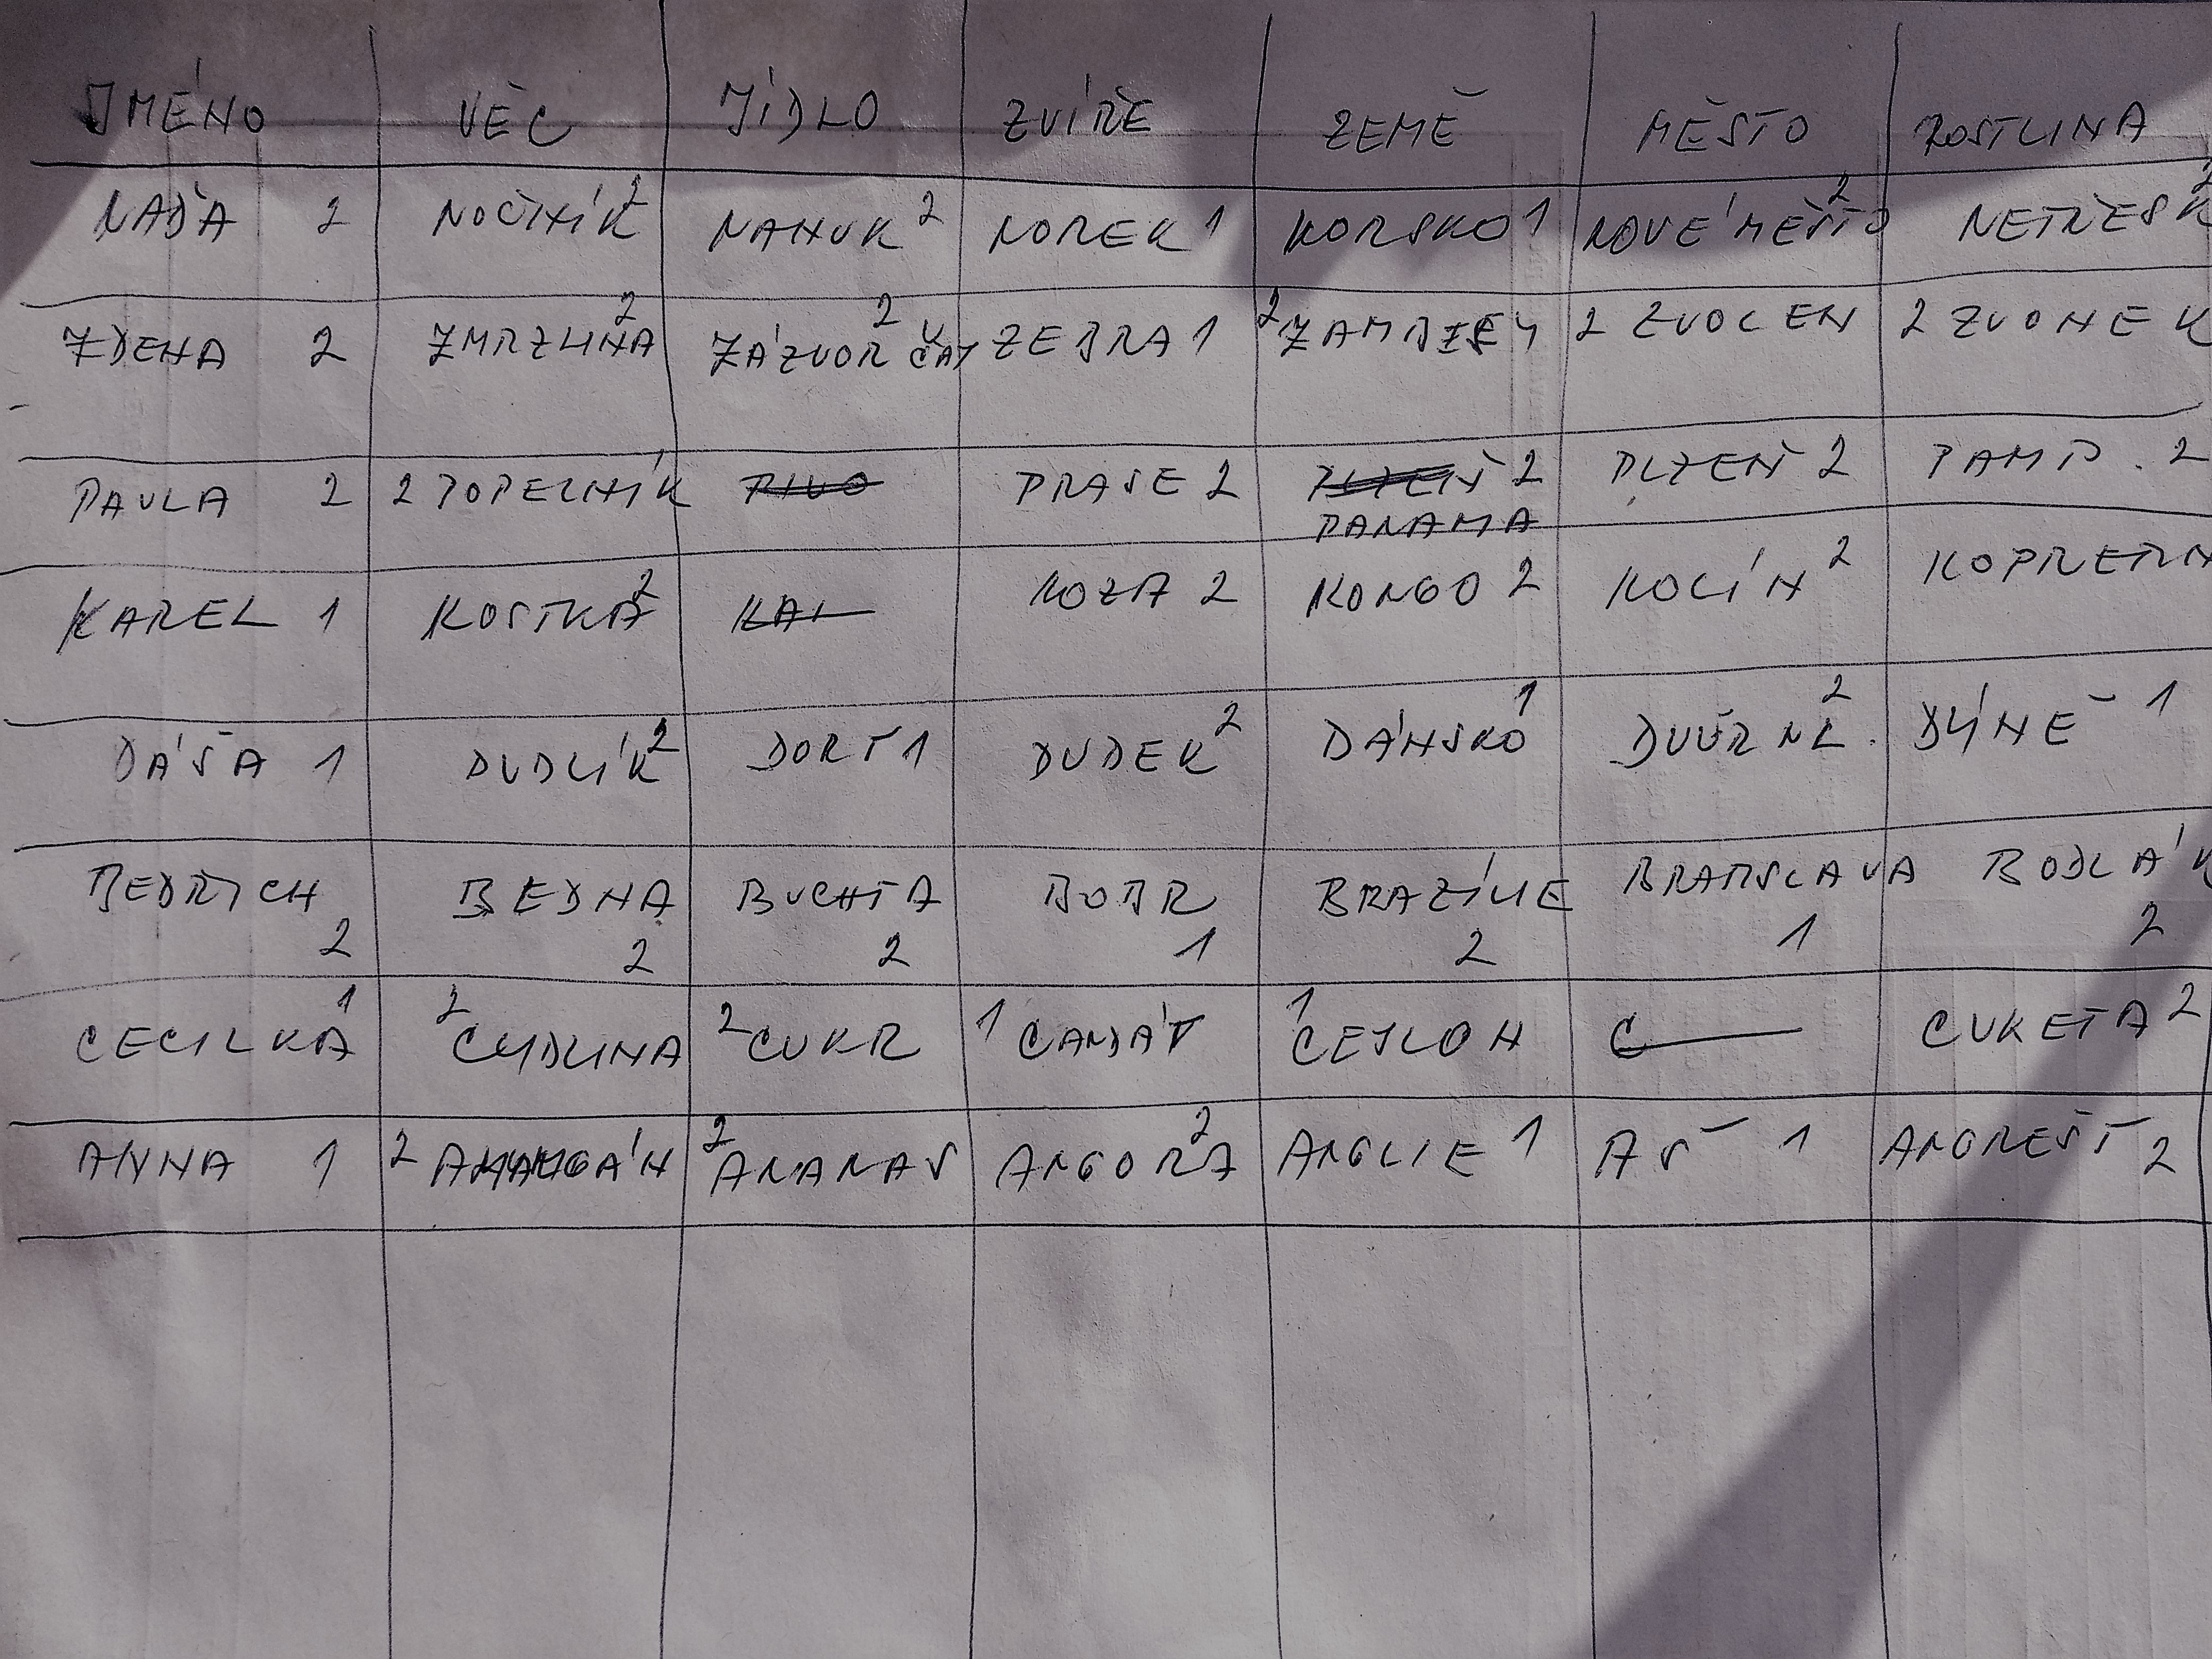 JMÉNO VĚC JÍDLO ZVÍŘE ZEMĚ MĚSTO ROSTLINA
NAĎA 2 NOČNÍK 2 NANUK 2 NOREK 1 NORSKO 1 NOVÉ MĚSTO 2 NETŘESK 2
ZDENA 2 ZMRZLINA 2 ZÁZVOR ČAJ 2 ZEBRA 1 2 2 ZVOLEN 2 ZVONEK
PAVLA 2 2 POPELNÍK PIVO PRASE 2 PLZEŇ 2 PLZEŇ 2 PAMP. 2
PANAMA
KAREL 1 KOSTKA 2 KAL KOZA 2 KONGO 2 KOLÍN 2 KOPRETIN
DÁŠA 1 DUDLÍK 2 DORT 1 DUDEK 2 DÁNSKO 1 DVŮR NL. 2 DÝNĚ 1
BEDŘICH 2 BEDNA 2 BUCHTA 2 BOBR 1 BRAZÍLIE 2 BRATISLAVA 1 BODLÁK 2
CECILKA 1 2 CUDLINA 2 CUKR 1 CANDÁT 1 CEJLON C CUKETA 2
ANNA 1 2 2 ANANAS ANGORA 2 ANGLIE 1 AŠ 1 ANGREŠT 2